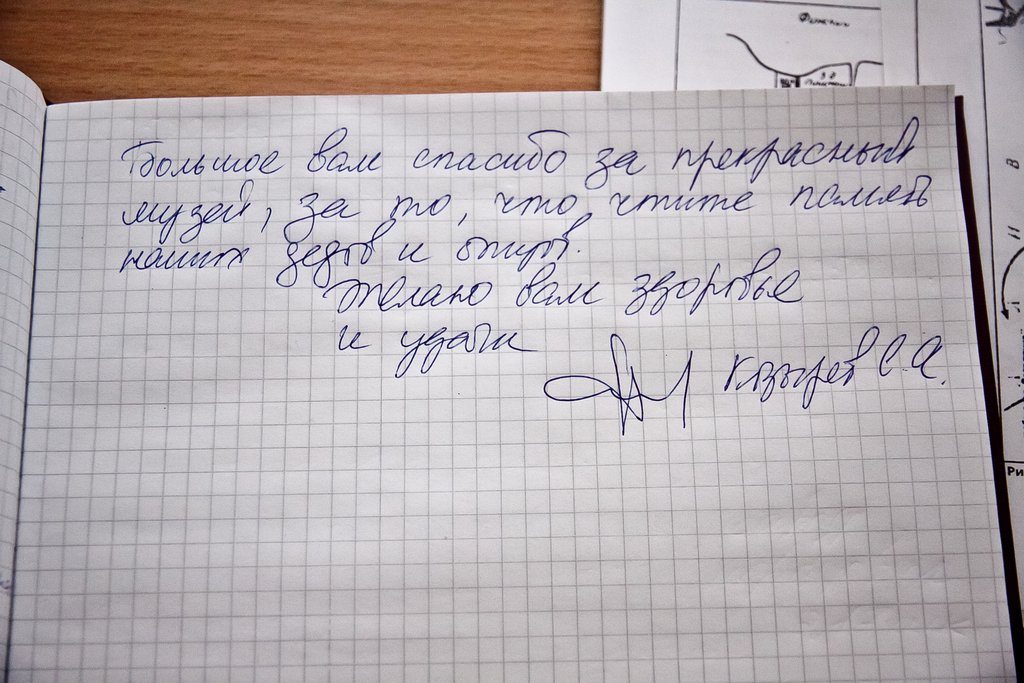 Большое вам спасибо за прекрасный
музей, за то, что чтите память
наших дедов и отцов.
Желаю вам здоровье
и удачи
Козырев С.А.
В
П
Ри